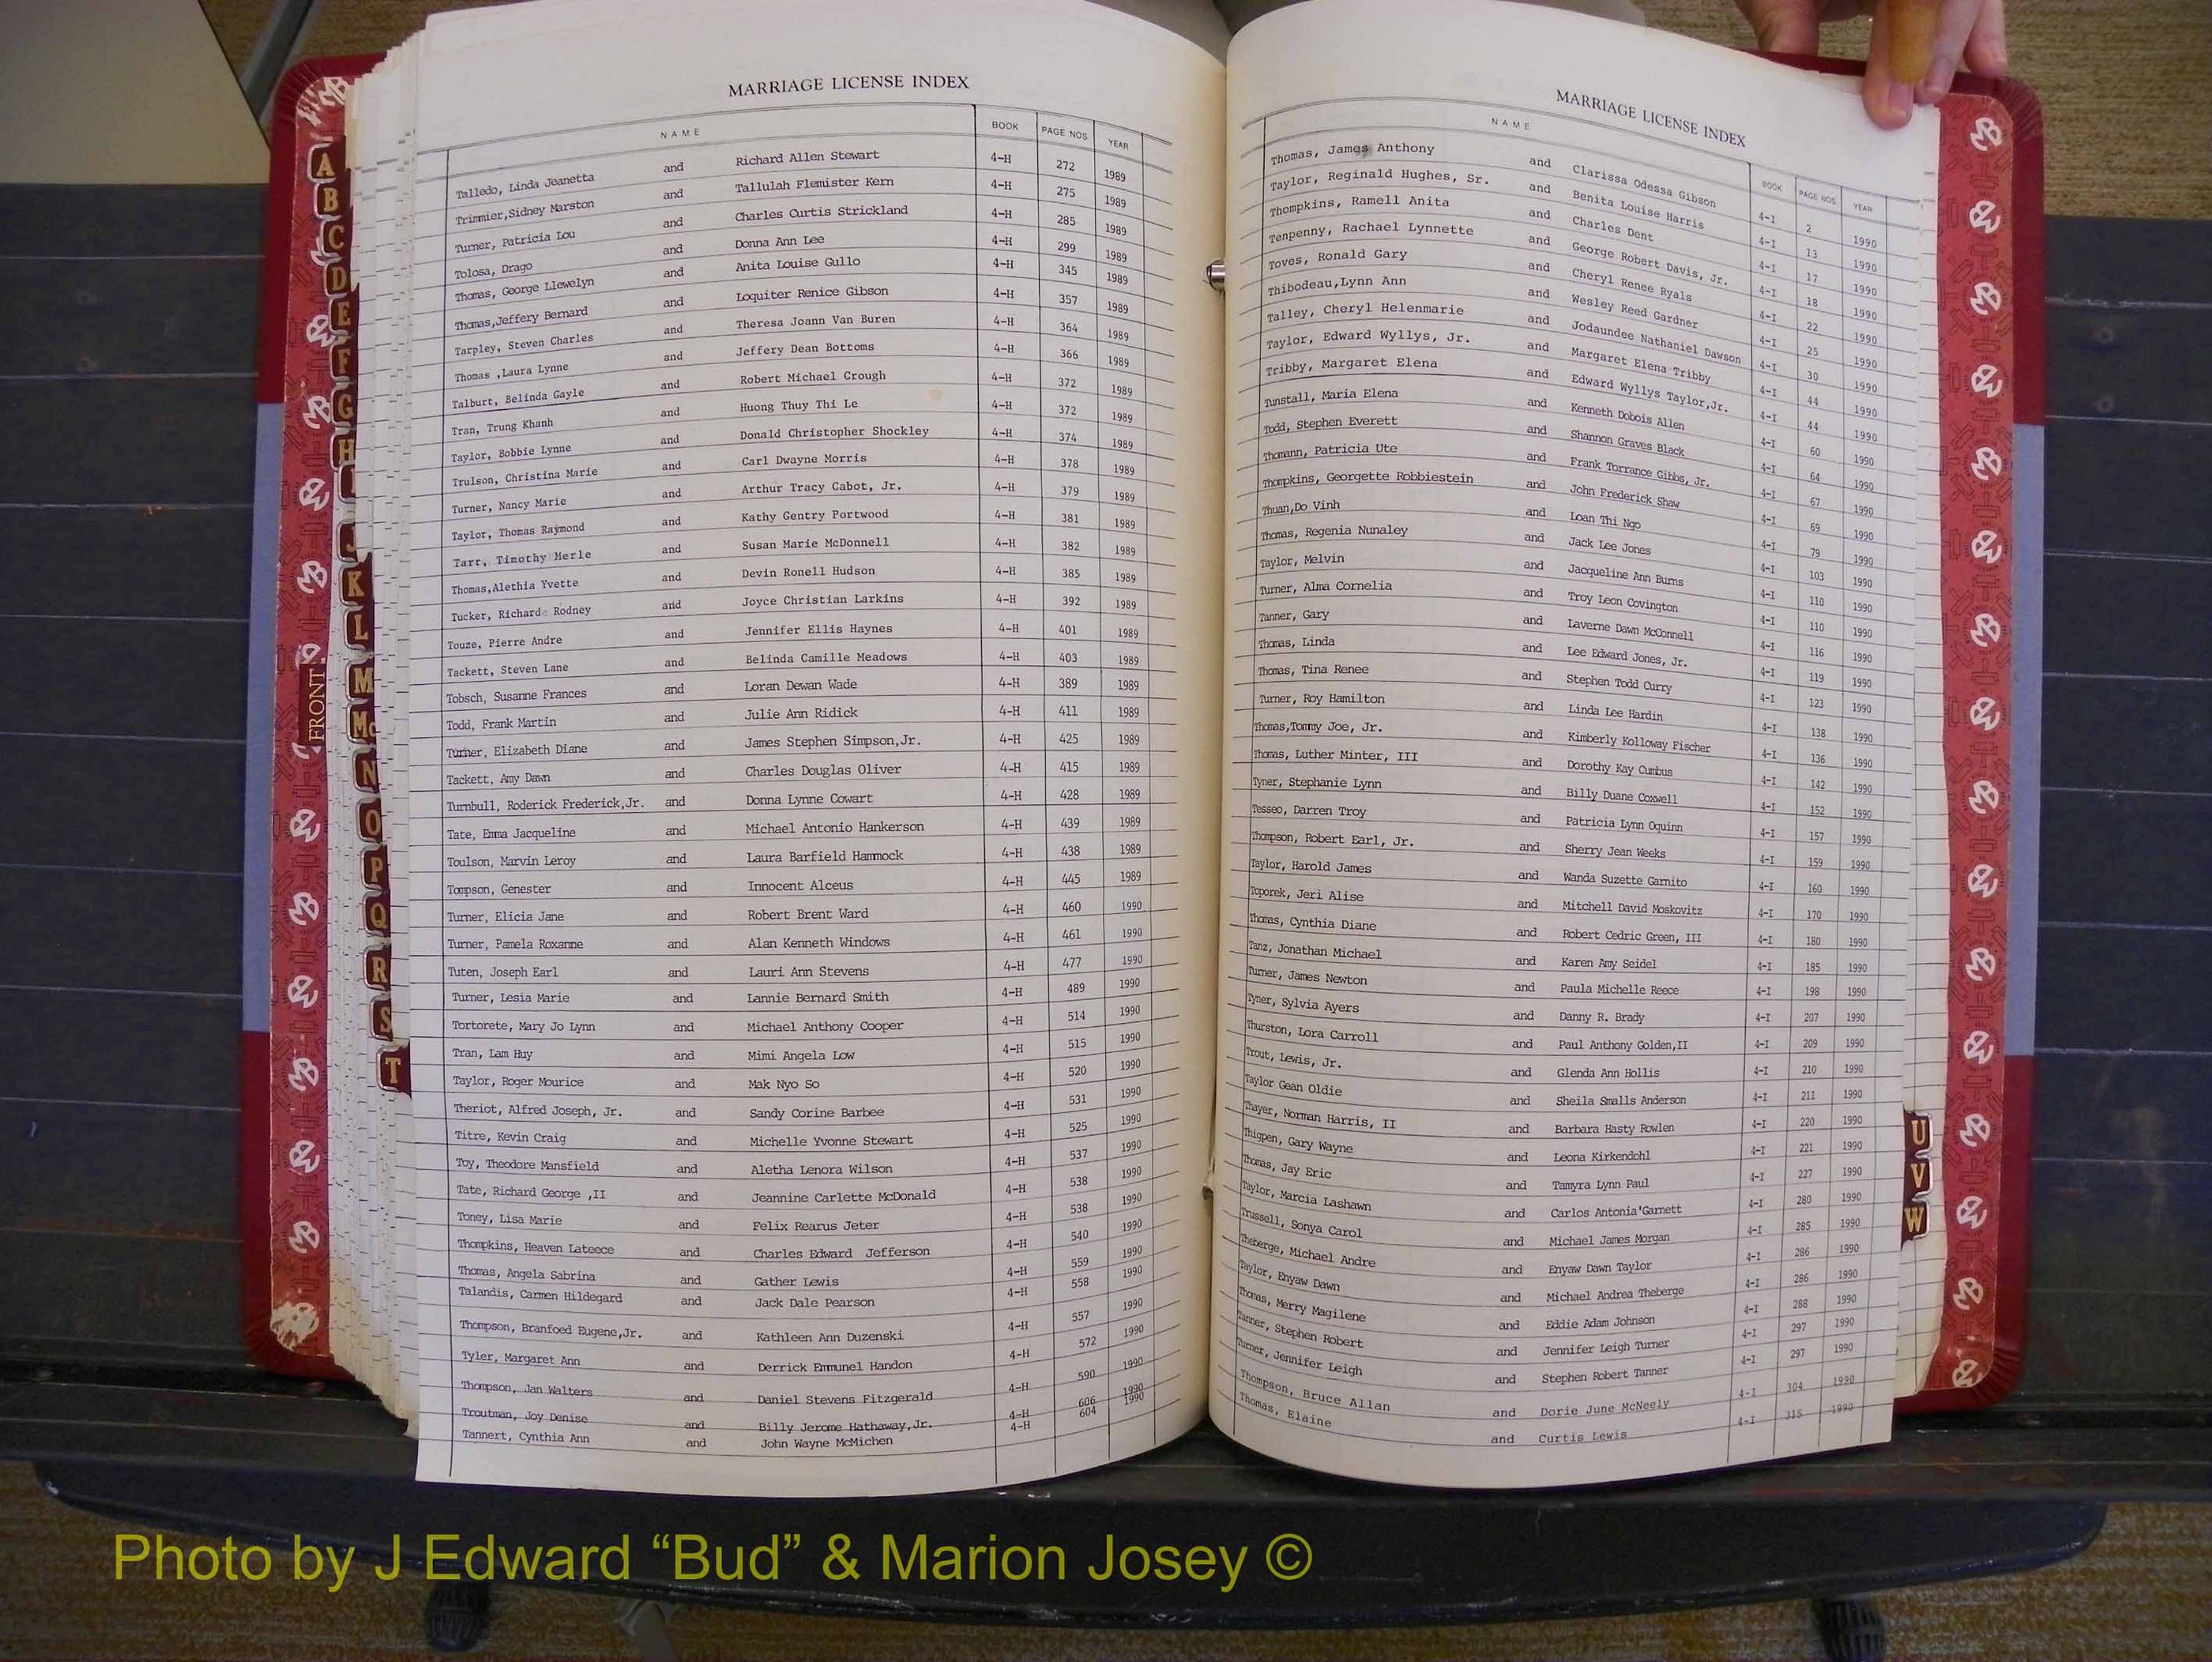 MARRIAGE LICENSE INDEX
NAME BOOK PAGE NOS YEAR
Talledo, Linda Jeanetta and Richard Allen Stewart 4-H 272 1989
Trimmier,Sidney Marston and Tallulah Flemister Kern 4-H 275 1989
Turner, Patricia Lou and Charles Curtis Strickland 4-H 285 1989
Tolosa, Drago and Donna Ann Lee 4-H 299 1989
Thomas, George Llewelyn and Anita Louise Gullo 4-H 345 1989
Thomas,Jeffery Bernard and Loquiter Renice Gibson 4-H 357 1989
Tarpley, Steven Charles and Theresa Joann Van Buren 4-H 364 1989
Thomas ,Laura Lynne and Jeffery Dean Bottoms 4-H 366 1989
Talburt, Belinda Gayle and Robert Michael Crough 4-H 372 1989
Tran, Trung Khanh and Huong Thuy Thi Le 4-H 372 1989
Taylor, Bobbie Lynne and Donald Christopher Shockley 4-H 374 1989
Trulson, Christina Marie and Carl Dwayne Morris 4-H 378 1989
Turner, Nancy Marie and Arthur Tracy Cabot, Jr. 4-H 379 1989
Taylor, Thomas Raymond and Kathy Gentry Portwood 4-H 381 1989
Tarr, Timothy Merle and Susan Marie McDonnell 4-H 382 1989
Thomas,Alethia Yvette and Devin Ronell Hudson 4-H 385 1989
Tucker, Richard Rodney and Joyce Christian Larkins 4-H 392 1989
Touze, Pierre Andre and Jennifer Ellis Haynes 4-H 401 1989
Tackett, Steven Lane and Belinda Camille Meadows 4-H 403 1989
Tobsch, Susanne Frances and Loran Dewan Wade 4-H 389 1989
Todd, Frank Martin and Julie Ann Ridick 4-H 411 1989
Turner, Elizabeth Diane and James Stephen Simpson,Jr. 4-H 425 1989
Tackett, Amy Dawn and Charles Douglas Oliver 4-H 415 1989
Turnbull, Roderick Frederick,Jr. and Donna Lynne Cowart 4-H 428 1989
Tate, Emma Jacqueline and Michael Antonio Hankerson 4-H 439 1989
Toulson, Marvin Leroy and Laura Barfield Hammock 4-H 438 1989
Tompson, Genester and Innocent Alceus 4-H 445 1989
Turner, Elicia Jane and Robert Brent Ward 4-H 460 1990
Turner, Pamela Roxanne and Alan Kenneth Windows 4-H 461 1990
Tuten, Joseph Earl and Lauri Ann Stevens 4-H 477 1990
Turner, Lesia Marie and Lannie Bernard Smith 4-H 489 1990
Tortorete, Mary Jo Lynn and Michael Anthony Cooper 4-H 514 1990
Tran, Lam Huy and Mimi Angela Low 4-H 515 1990
Taylor, Roger Mourice and Mak Nyo So 4-H 520 1990
Theriot, Alfred Joseph, Jr. and Sandy Corine Barbee 4-H 531 1990
Titre, Kevin Craig and Michelle Yvonne Stewart 4-H 525 1990
Toy, Theodore Mansfield and Aletha Lenora Wilson 4-H 537 1990
Tate, Richard George ,II and Jeannine Carlette McDonald 4-H 538 1990
Toney, Lisa Marie and Felix Rearus Jeter 4-H 538 1990
Thompkins, Heaven Lateece and Charles Edward Jefferson 4-H 540 1990
Thomas, Angela Sabrina and Gather Lewis 4-H 559 1990
Talandis, Carmen Hildegard and Jack Dale Pearson 4-H 558 1990
Thompson, Branfoed Eugene,Jr. and Kathleen Ann Duzenski 4-H 557 1990
Tyler, Margaret Ann and Derrick Emmunel Handon 4-H 572 1990
Thompson, Jan Walters and Daniel Stevens Fitzgerald 4-H 590 1990
Troutman, Joy Denise and Billy Jerome Hathaway,Jr. 4-H 606 1990
Tannert, Cynthia Ann and John Wayne McMichen 4-H 604 1990
MARRIAGE LICENSE INDEX
NAME BOOK PAGE NOS YEAR
Thomas, James Anthony and Clarissa Odessa Gibson 4-I 2 1990
Taylor, Reginald Hughes, Sr. and Benita Louise Harris 4-I 13 1990
Thompkins, Ramell Anita and Charles Dent 4-I 17 1990
Tenpenny, Rachael Lynnette and George Robert Davis, Jr. 4-I 18 1990
Toves, Ronald Gary and Cheryl Renee Ryals 4-I 22 1990
Thibodeau,Lynn Ann and Wesley Reed Gardner 4-I 25 1990
Talley, Cheryl Helenmarie and Jodaundee Nathaniel Dawson 4-I 30 1990
Taylor, Edward Wyllys, Jr. and Margaret Elena Tribby 4-I 44 1990
Tribby, Margaret Elena and Edward Wyllys Taylor,Jr. 4-I 44 1990
Tunstall, Maria Elena and Kenneth Dobois Allen 4-I 60 1990
Todd, Stephen Everett and Shannon Graves Black 4-I 64 1990
Thomann, Patricia Ute and Frank Torrance Gibbs, Jr. 4-I 67 1990
Thompkins, Georgette Robbiestein and John Frederick Shaw 4-I 69 1990
Thuan,Do Vinh and Loan Thi Ngo 4-I 79 1990
Thomas, Regenia Nunaley and Jack Lee Jones 4-I 103 1990
Taylor, Melvin and Jacqueline Ann Burns 4-I 110 1990
Turner, Alma Cornelia and Troy Leon Covington 4-I 110 1990
Tanner, Gary and Laverne Dawn McConnell 4-I 116 1990
Thomas, Linda and Lee Edward Jones, Jr. 4-I 119 1990
Thomas, Tina Renee and Stephen Todd Curry 4-I 123 1990
Turner, Roy Hamilton and Linda Lee Hardin 4-I 138 1990
Thomas,Tommy Joe, Jr. and Kimberly Kolloway Fischer 4-I 136 1990
Thomas, Luther Minter, III and Dorothy Kay Cumbus 4-I 142 1990
Tyner, Stephanie Lynn and Billy Duane Coxwell 4-I 152 1990
Tesseo, Darren Troy and Patricia Lynn Oquinn 4-I 157 1990
Thompson, Robert Earl, Jr. and Sherry Jean Weeks 4-I 159 1990
Taylor, Harold James and Wanda Suzette Garnito 4-I 160 1990
Toporek, Jeri Alise and Mitchell David Moskovitz 4-I 170 1990
Thomas, Cynthia Diane and Robert Cedric Green, III 4-I 180 1990
Tanz, Jonathan Michael and Karen Amy Seidel 4-I 185 1990
Turner, James Newton and Paula Michelle Reece 4-I 198 1990
Tyner, Sylvia Ayers and Danny R. Brady 4-I 207 1990
Thurston, Lora Carroll and Paul Anthony Golden,II 4-I 209 1990
Trout, Lewis, Jr. and Glenda Ann Hollis 4-I 210 1990
Taylor Gean Oldie and Sheila Smalls Anderson 4-I 211 1990
Thayer, Norman Harris, II and Barbara Hasty Rowlen 4-I 220 1990
Thigpen, Gary Wayne and Leona Kirkendohl 4-I 221 1990
Thomas, Jay Eric and Tamyra Lynn Paul 4-I 227 1990
Taylor, Marcia Lashawn and Carlos Antonia'Garnett 4-I 280 1990
Trussell, Sonya Carol and Michael James Morgan 4-I 285 1990
Theberge, Michael Andre and Enyaw Dawn Taylor 4-I 286 1990
Taylor, Enyaw Dawn and Michael Andrea Theberge 4-I 286 1990
Thomas, Merry Magilene and Eddie Adam Johnson 4-I 288 1990
Tanner, Stephen Robert and Jennifer Leigh Turner 4-I 297 1990
Turner, Jennifer Leigh and Stephen Robert Tanner 4-I 297 1990
Thompson, Bruce Allan and Dorie June McNeely 4-I 304 1990
Thomas, Elaine and Curtis Lewis 4-I 315 1990
A
B
C
D
E
F
G
H
J
K
L
M
Mc
N
O
P
Q
R
S
T
FRONT
U
V
W
Photo by J Edward “Bud” & Marion Josey ©